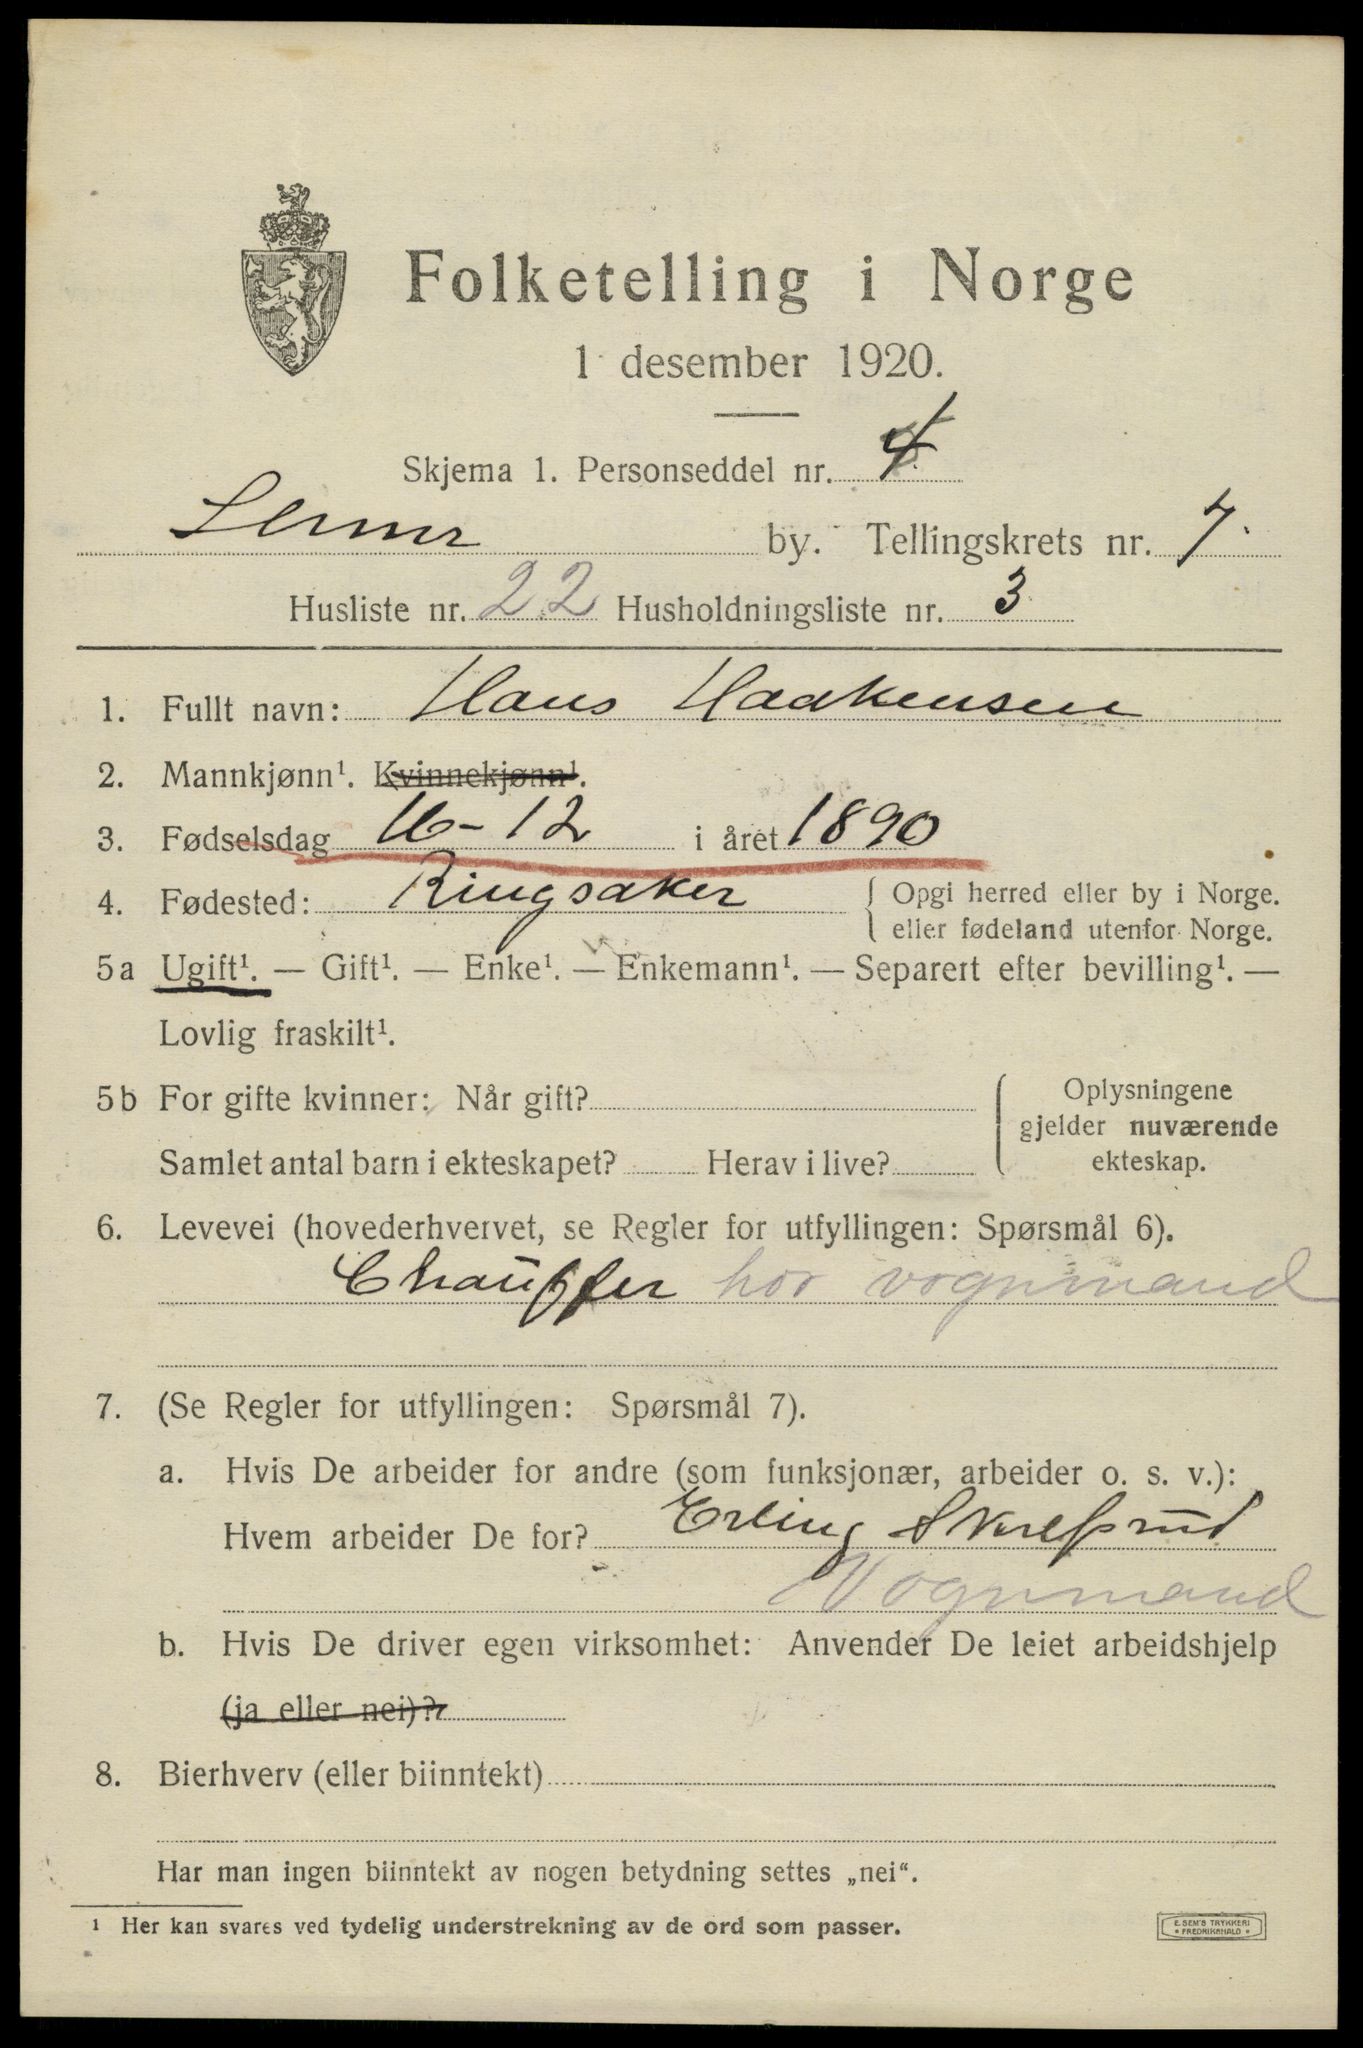 Folketelling i Norge
1 desember 1920.
Skjema 1. Personseddel nr. 4
by. Tellingskrets nr. 7.
Husliste nr. 22 Husholdningsliste nr. 3
1. Fullt navn: Hans Haakensen
2. Mannkjønn¹. Kvinnekjønn¹.
3. Fødselsdag 16-12 i året 1890
4. Fødested: Ringsaker { Opgi herred eller by i Norge.
eller fødeland utenfor Norge.
5a Ugift¹. — Gift¹. — Enke¹. — Enkemann¹. — Separert efter bevilling¹. —
Lovlig fraskilt¹.
5b For gifte kvinner: Når gift? { Oplysningene
gjelder nuværende
Samlet antal barn i ekteskapet? Herav i live? ekteskap.
6. Levevei (hovederhvervet, se Regler for utfyllingen: Spørsmål 6).
Chauffer hos vognmand
7. (Se Regler for utfyllingen: Spørsmål 7).
a. Hvis De arbeider for andre (som funksjonær, arbeider o. s. v.):
Hvem arbeider De for? Erling Skrefsrud
Vognmand
b. Hvis De driver egen virksomhet: Anvender De leiet arbeidshjelp
(ja eller nei)?
8. Bierhverv (eller biinntekt)
Har man ingen biinntekt av nogen betydning settes „nei“.
¹ Her kan svares ved tydelig understrekning av de ord som passer.
E. SEM'S TRYKKERI
FREDRIKSHALD